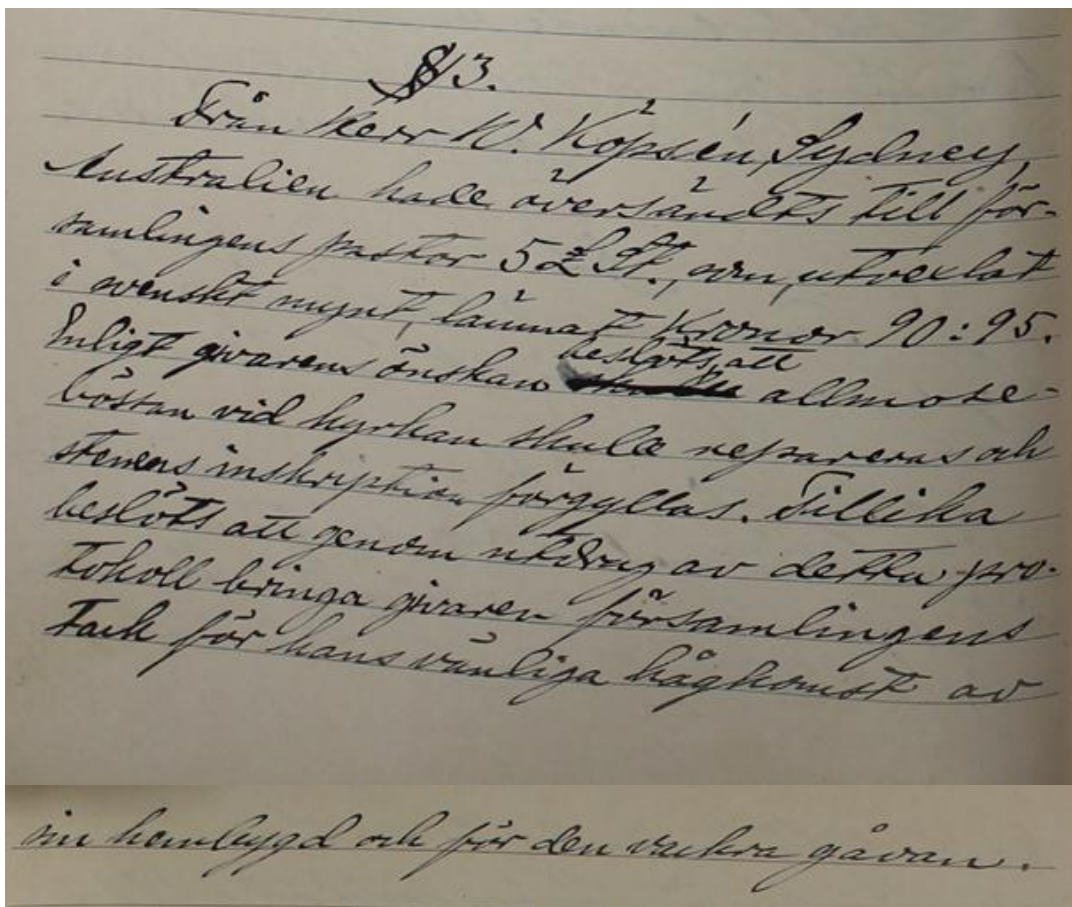 § 3.
Från Herr W. Köpsén, Sydney,
Australien hade översändts till för-
samlingens pastor 5 £ St., som, utvexlat
i svenskt mynt, lämnat Kronor 90:95.
beslöts, att
Enligt givarens önskan allmose-
bössan vid kyrkan skulle repareras och
stenens inskription förgyllas. Tillika
beslöts att genom utdrag av detta pro-
tokoll bringa givaren församlingens
tack för hans vänliga hågkomst av
sin hembygd och för den vackra gåvan.